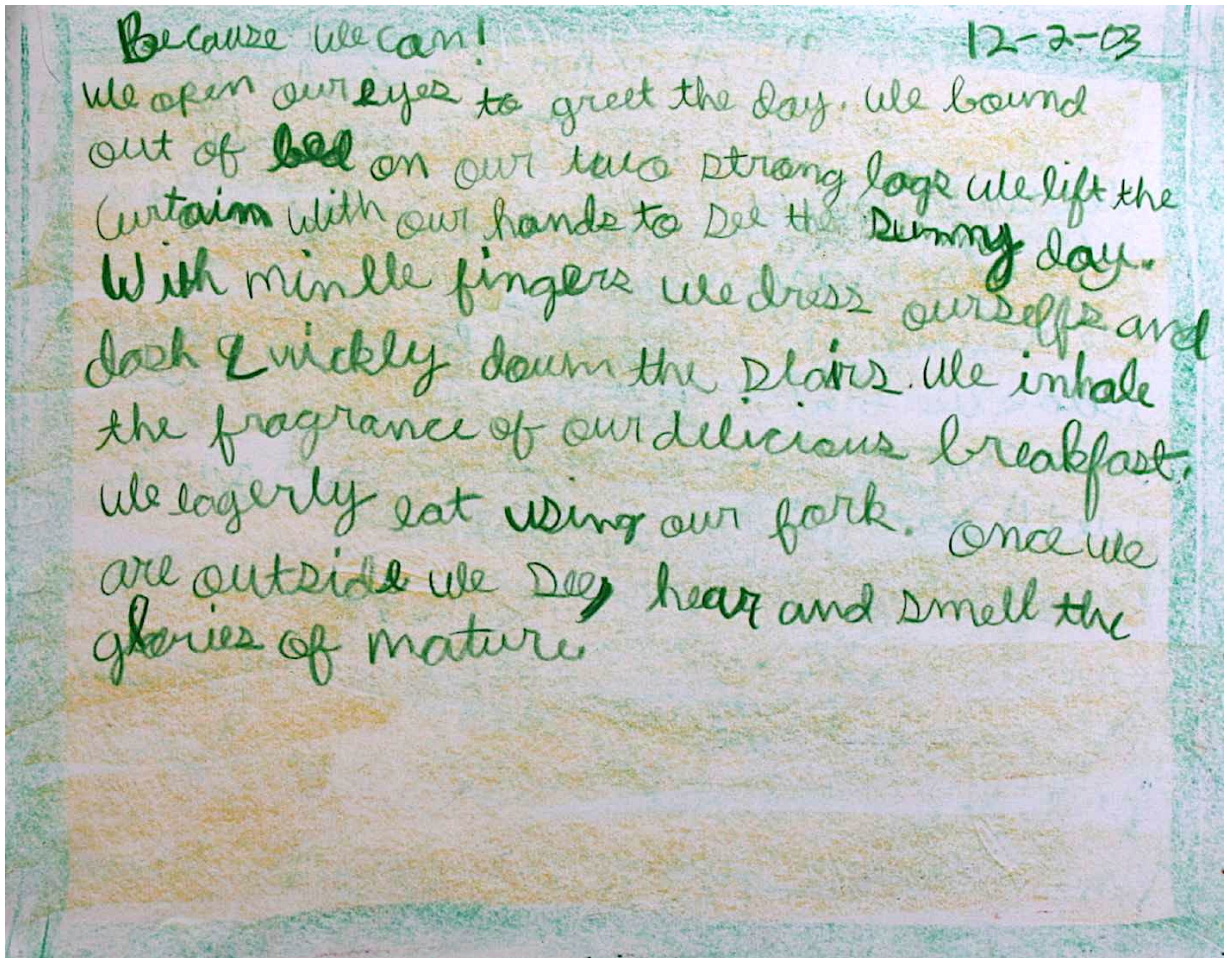 Because we can! 12-2-03
We open our eyes to greet the day. We bound
out of bed on our two strong legs we lift the
Curtain with our hands to see the sunny day.
With minlle fingers we dress ourselfs and
dash quickly down the stairs. We inhale
the fragrance of our delicious breakfast.
We eagerly eat using our fork. Once we
are outside we see, hear and smell the
glories of nature.